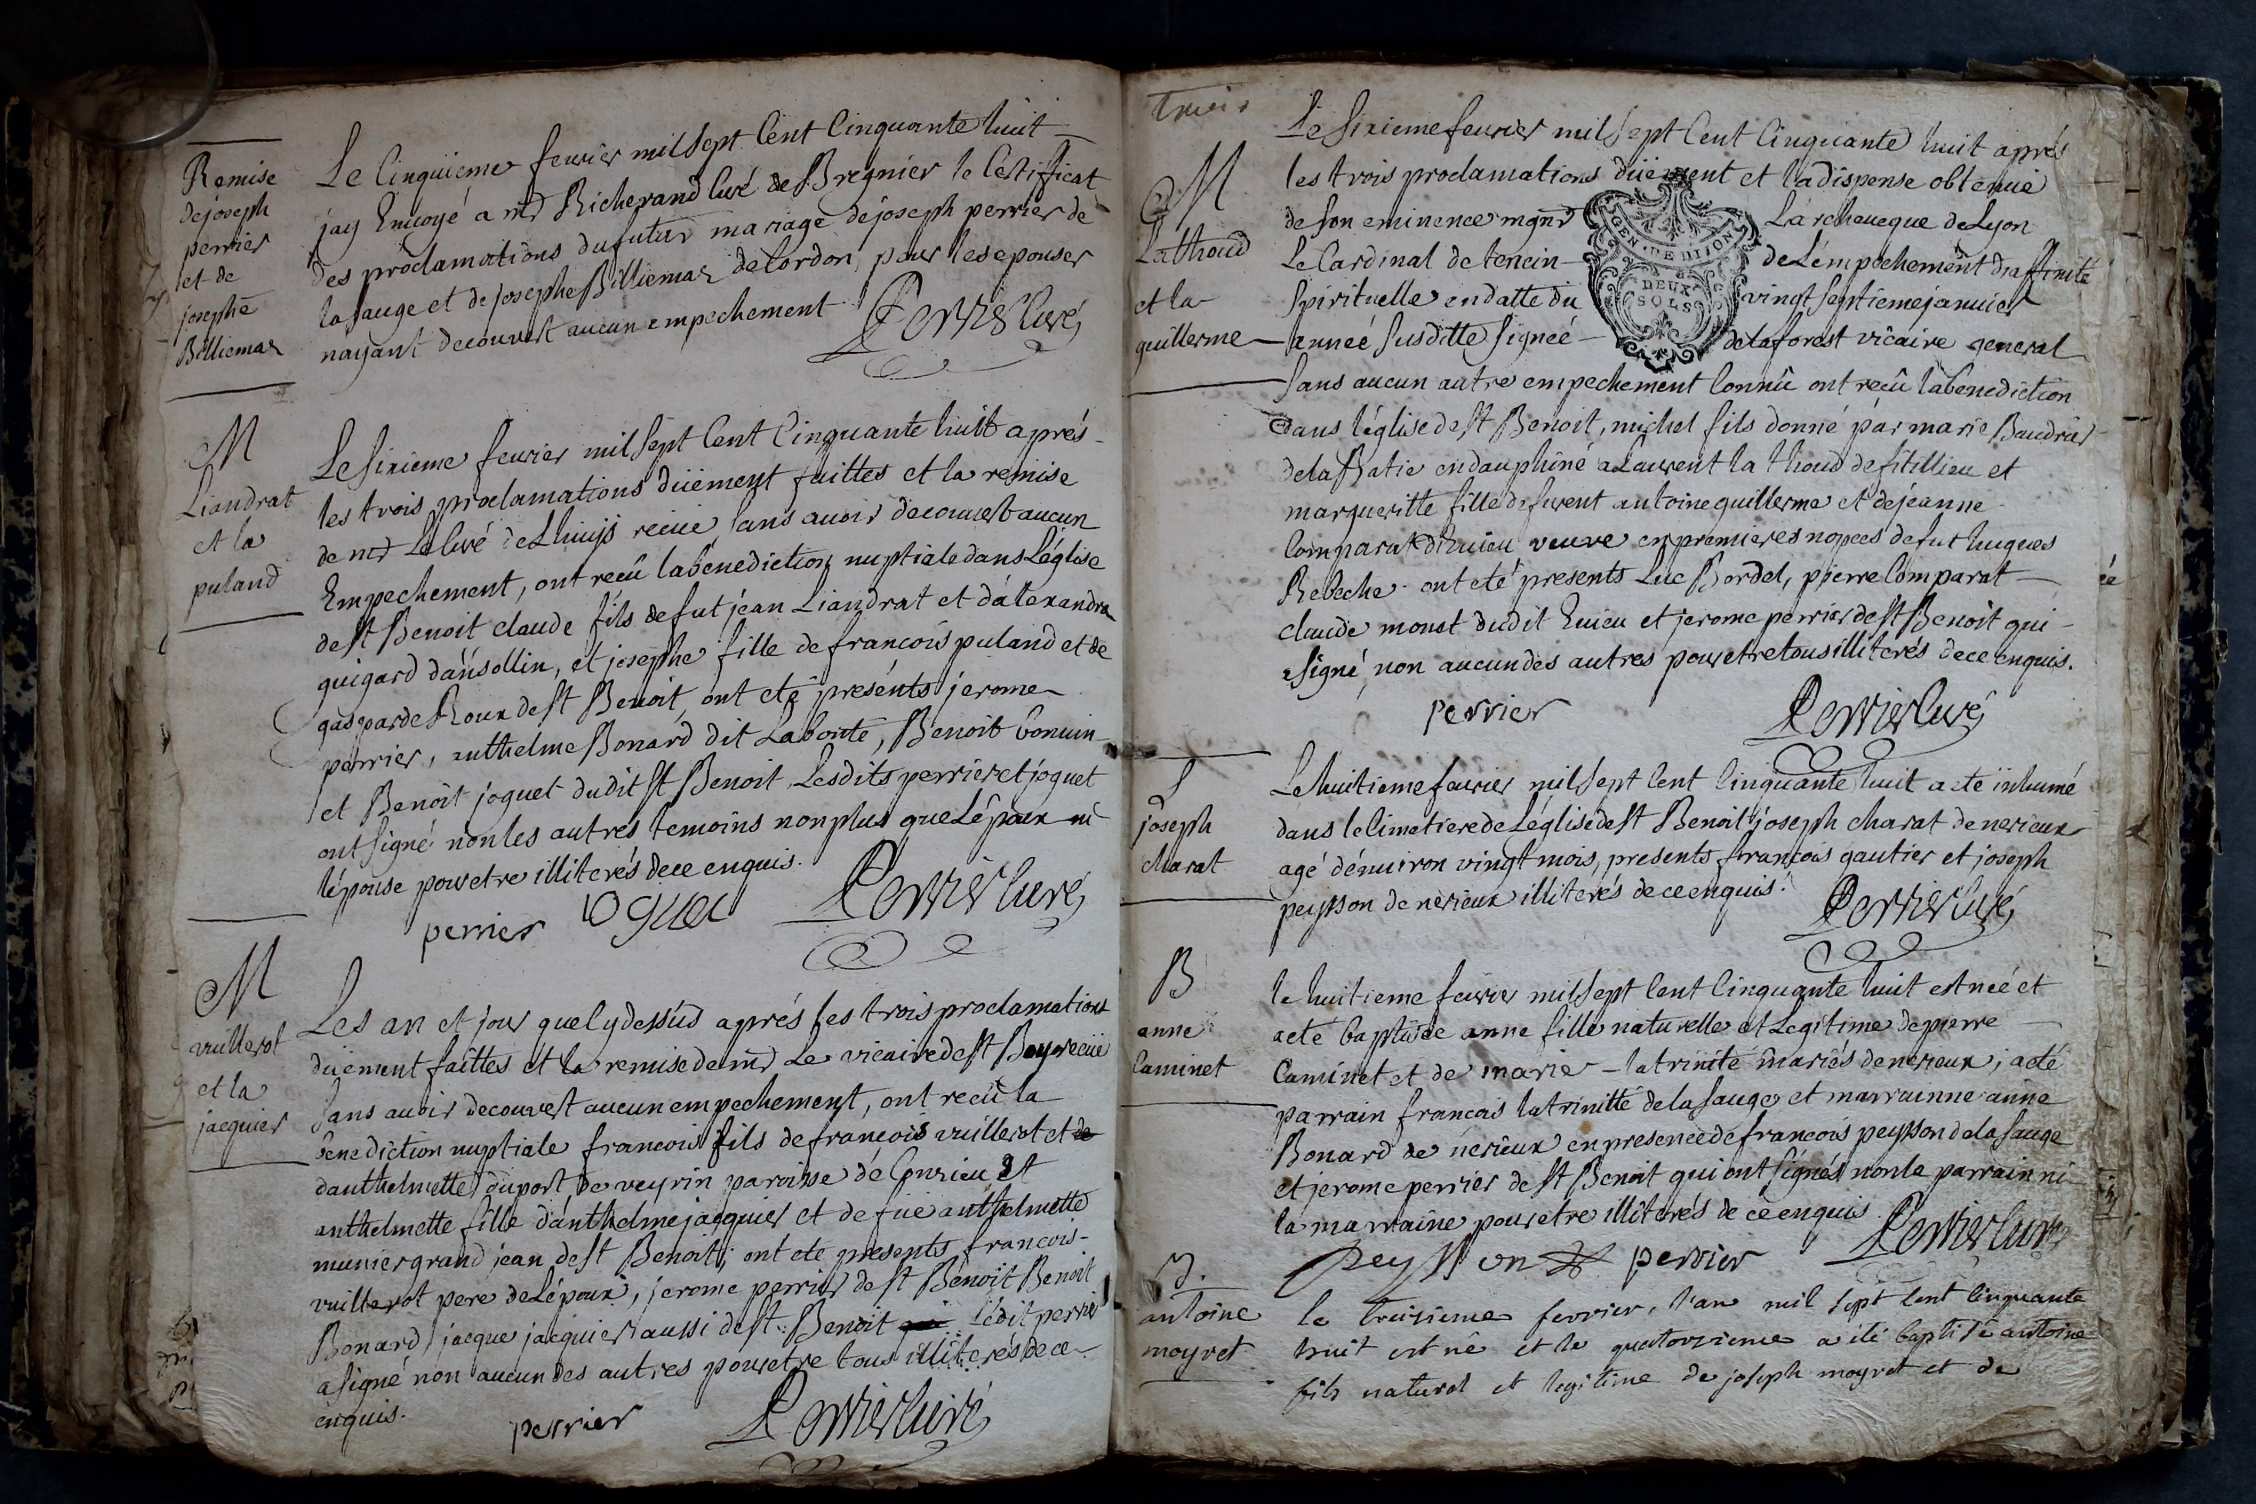 Remise
de joseph
perrier
et de
josephe
Billiemaz
Le Cinquieme feurier mil sept Cent Cinquante huit
jay Enuoyé a mr Richerand Curé de Bregnier le Certificat
des proclamations du futur mariage de joseph perrier de
la sauge et de josephe Billiemaz de Cordon, pour les epouser
nayant decouvert aucun empechement
Perrier Curé
M
Liandrat
et la
puland
Le sixieme feurier mil sept Cent Cinquante huit aprés
les trois proclamations düement faittes et la remise
de mr Le Curé de Lhuijs reçue, sans auoir decouvert aucun
Empechement, ont recû la benediction nuptiale dans Léglise
de st Benoit claude fils de fut jean Liandrat et dálexandra
guigard dansollin, et josephe fille de francois puland et de
gasparde Roux de st Benoit, ont eté presénts jerome
perrier, anthelme Bonard dit Labonté, Benoit bonuin
et Benoit joguet dudit st Benoit Lesdits perrier et joguet
ont signé non les autres temoins non plus que Lépoux ni
lépouse pour etre illiterés de ce enquis.
perrier joguet Perrier Curé
M
vuillerot
et la
jacquier
Les an et jour que Cy dessus aprés les trois proclamations
düement faittes et la remise de mr Le vicaire de st Boy recüe
sans auoir decouvert aucun empechement, ont recû la
benediction nuptiale francois fils de francois vuillerot et de
danthelmette duport de veyrin paroisse de Conzieu et
anthelmette fille dánthelme jacquier et de füe anthelmette
munier grand jean de st Benoit; ont eté presents francois
vuillerot pere de Lépoux, jerome perrier de st Benoit Benoit
Bonard, jacque jacquier aussi de st Benoit Ledit perrier
a signé non aucun des autres pour etre tous illiterés de ce
enquis.
perrier Perrier Curé
trois
M
Lathoud
et la
guillerme
Le sixieme feurier mil sept Cent Cinquante huit aprés
les trois proclamations düement et la dispense obtenue
de son eminence mgnr Lárcheueque de Lyon
Le Cardinal de tencin de Lémpechement dáffinité
Spirituelle en datte du vingt septieme januier
année susditte signeé de laforest vicaire general
GEN. DE DIJON
DEUX
SOLS
sans aucun autre empechement Connû ont reçû la benediction
dans léglise de st Benoit, michel fils donné par marie Baudrier
de la Batie en dauphiné a Laurent la thoud de fitillieu et
margueritte fille de furent antoine guillerme et de jeanne
Comparat dEuieu veuve en premieres nopces de fut hugues
Rebeche. ont eté presents Luc Bordel, pierre Comparat
claude monet dudit Euieu et jerome perrier de st Benoit qui
a signé, non aucun des autres pour etre tous illiterés de ce enquis.
perrier Perrier Curé
S
joseph
charat
Le huitieme feurier mil sept Cent Cinquante huit a eté inhumé
dans le Cimetiere de Léglise de st Benoit joseph charat de nerieux
agé dénuiron vingt mois, presents francois gautier et joseph
peysson de nerieux illiterés de ce enquis.
Perrier Curé
B
anne
Caminet
le huitieme feurier mil sept Cent Cinquante huit est neé et
a eté baptisée anne fille naturelle et Legitime de pierre
Caminet et de marie latrinité mariés de nerieux; a eté
parrain francois latrinitté de la sauge et marrainne anne
Bonard de nerieux en presence de francois peysson de la sauge
et jerome perrier de st Benoit qui ont signés non le parrain ni
la marraine pour etre illiterés de ce enquis
Peysson perrier Perrier Curé
B.
antoine
moyret
le treisieme fevrier, lan mil sept cent cinquante
huit est né et le quatorzieme a été baptisé antoine
fils naturel et legitime de joseph moyret et de